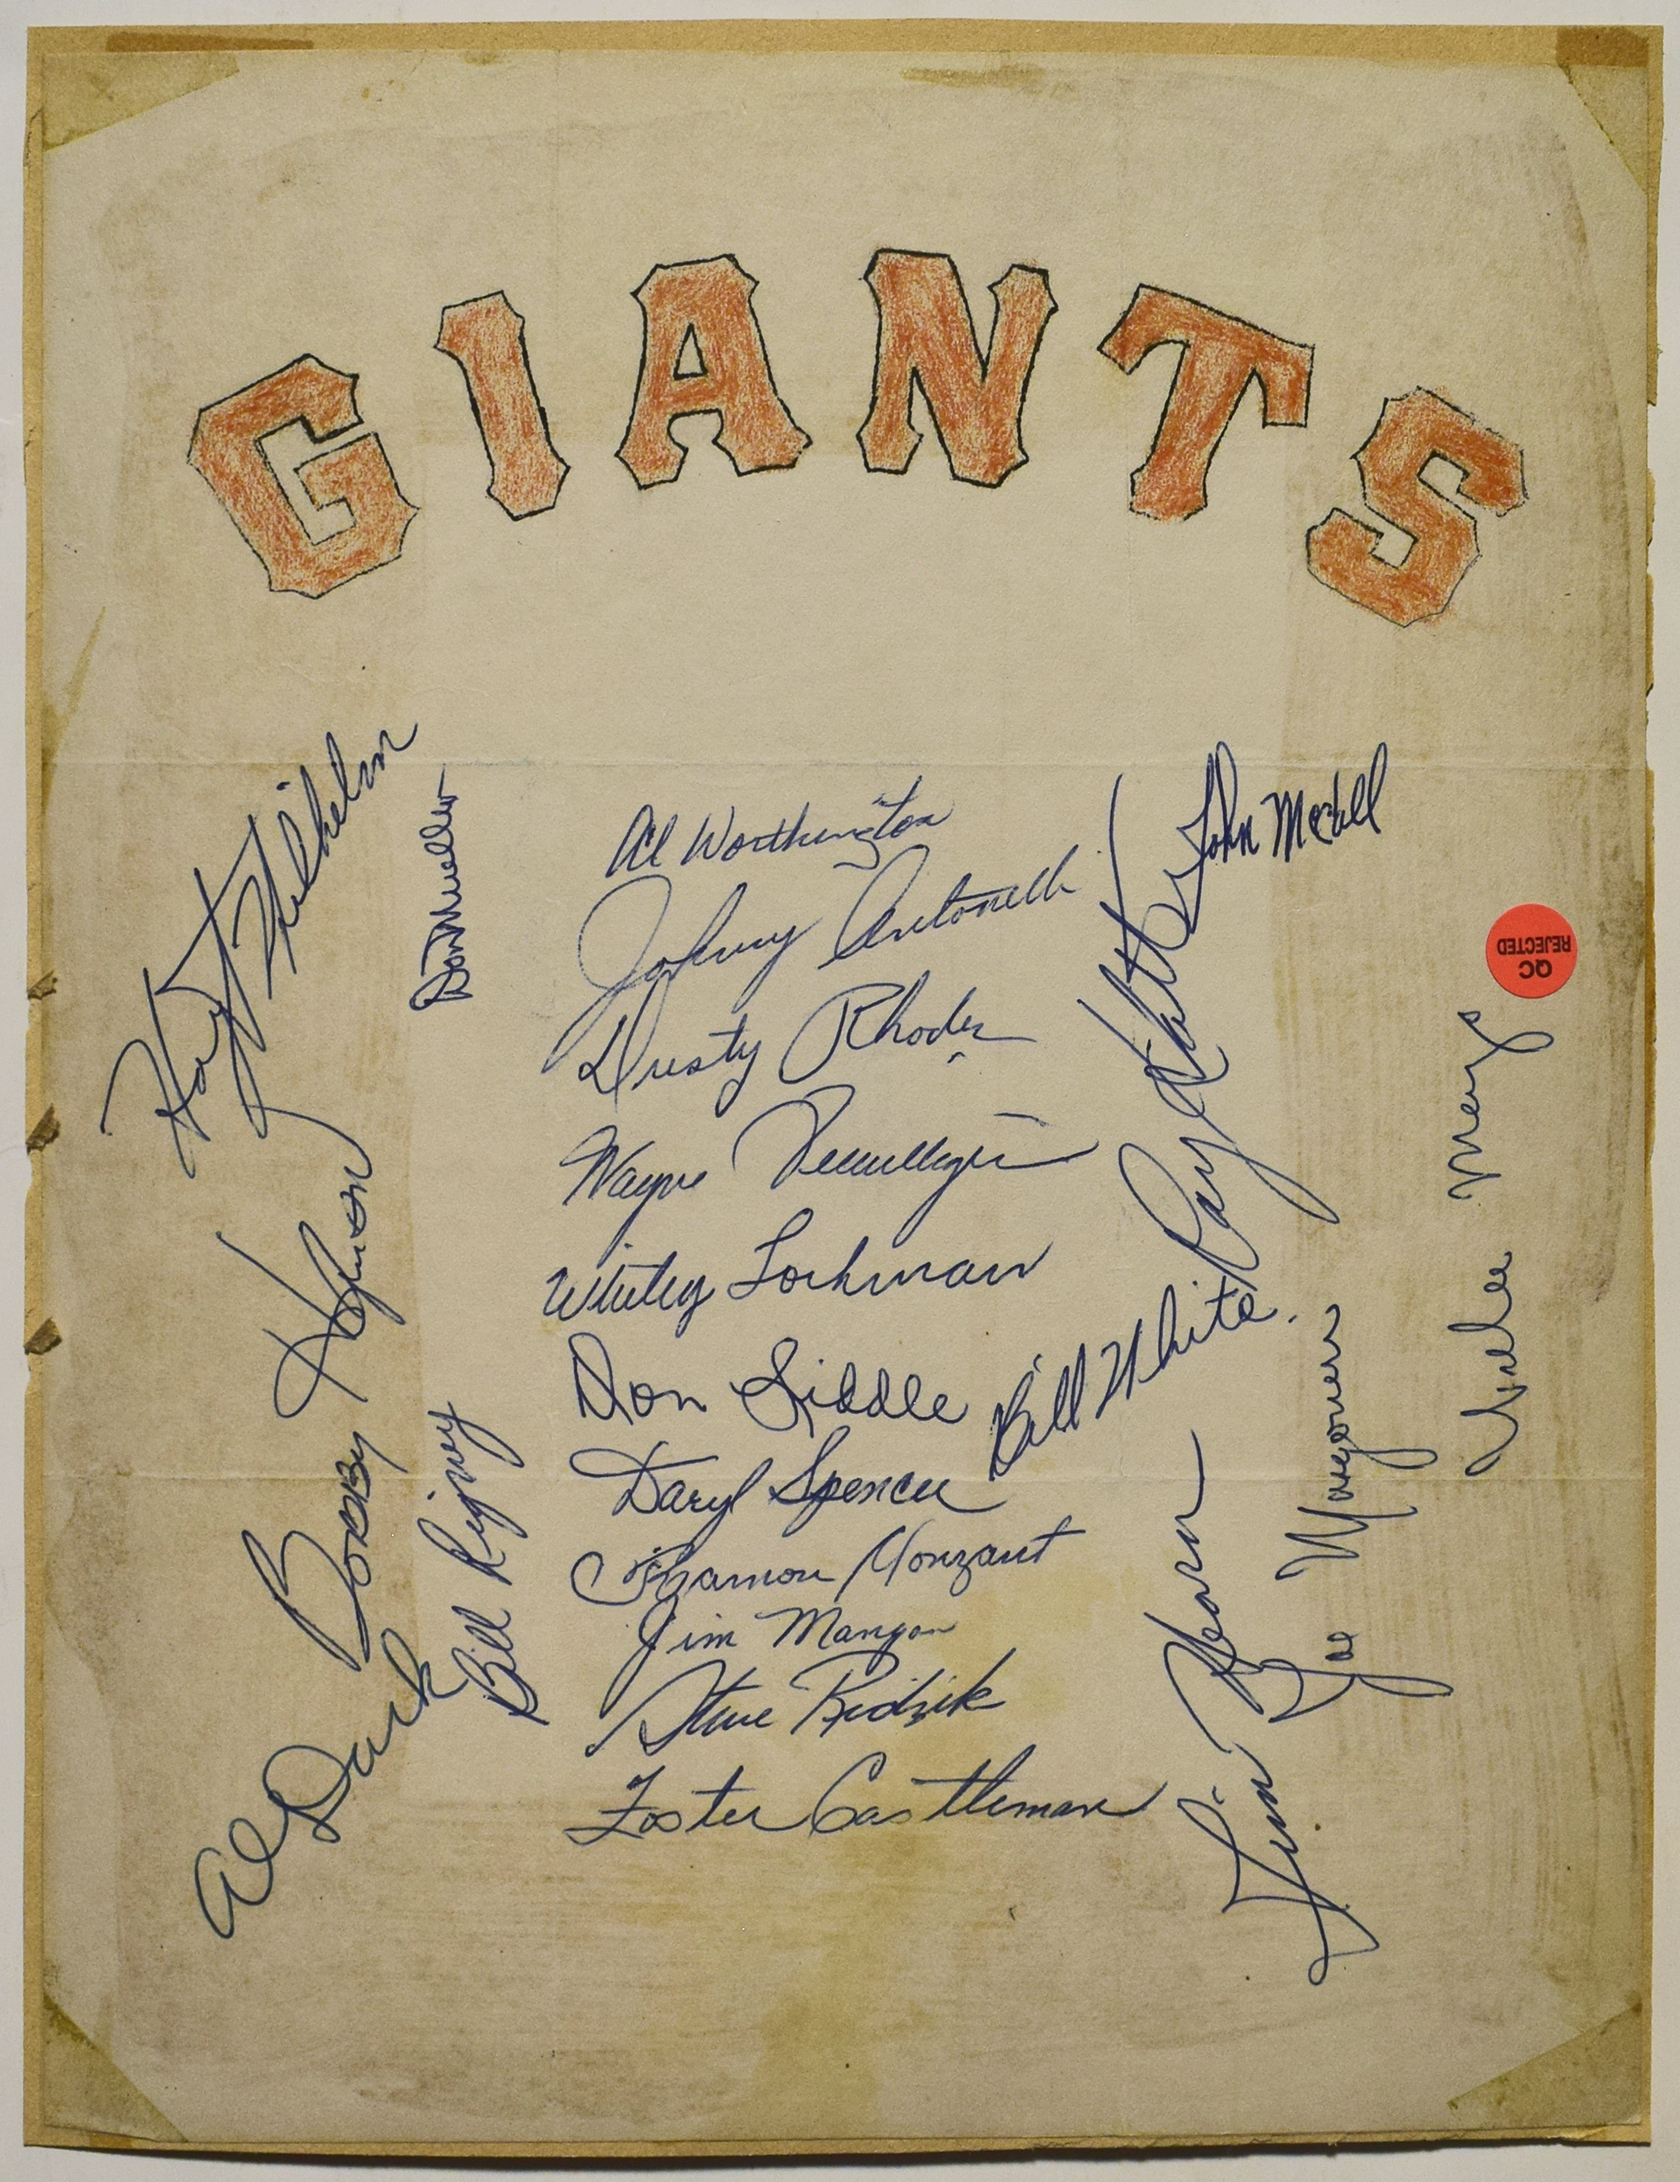 GIANTS
Hoyt Wilhelm
Don Mueller
Bobby Hofman
Bill Rigney
Al Dark
Al Worthington
Johnny Antonelli
Dusty Rhodes
Wayne Terwilliger
Whitey Lockman
Don Liddle
Daryl Spencer
Ramon Monzant
Jim Mangan
Steve Ridzik
Foster Castleman
Ray Katt
John McCall
Bill White
Jim Hearn
Joe Margoneri
Willie Mays
QC
REJECTED